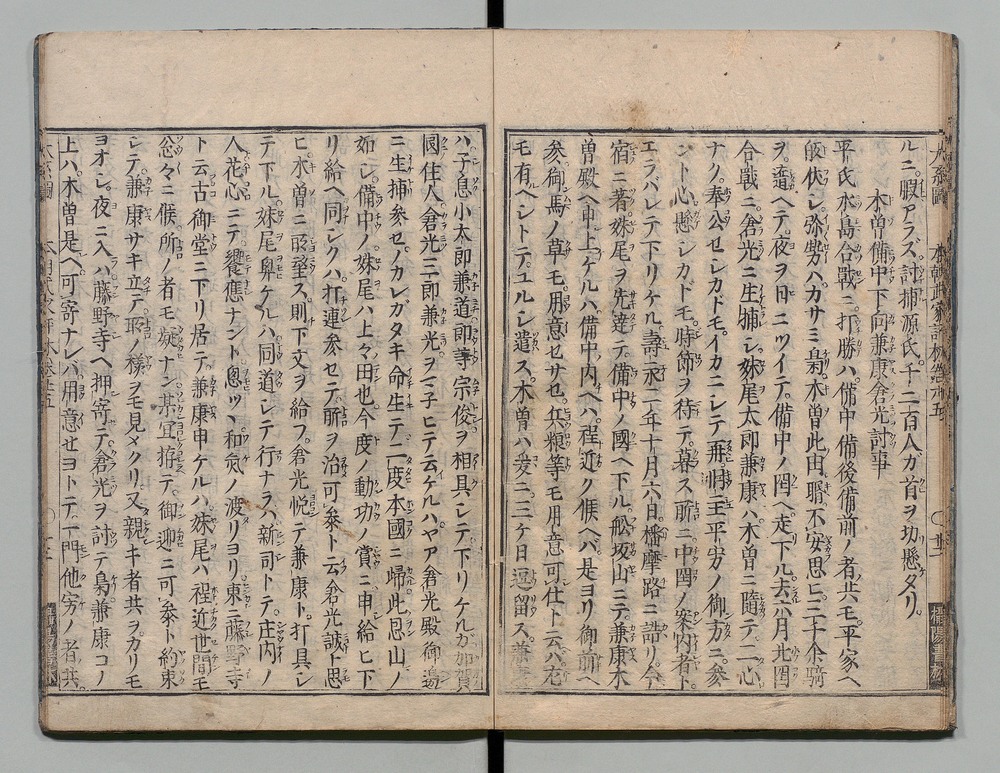 ルニ。暇アラズ。討捕源氏。千二百人カ首ヲ切懸タリ。
木曽備中下向兼康倉光討事
平氏水島合戰ニ。打勝ハ。備中備後備前ノ者共モ。平家ヘ
皈伏シ。弥勢ハカサミ梟。木曽此由聞。不安思ヒ。二十余騎
ヲ。適ヘテ。夜ヲ日ニツイテ。備中ノ國ヘ走下ル。去六月北国
合戰ニ。倉光ニ生捕シ。妹尾太郎兼康ハ。木曽ニ隨テ。二心
ナク。奉公セシカドモ。イカニシテ再ヒ主平家ノ御方ニ参
ント。心懸シカドモ。時節ヲ待テ。暮ス所ニ。中国ノ案内者ト。
エラバレテ下リケル。壽永二年十月六日。播摩路ニ詣リ。今
宿ニ著。妹尾ヲ先達テ。備中ノ國ヘ下ル。舩坂山ニテ。兼康木
曽殿ヘ申上ケルハ。備中ノ内ヘハ。程近ク候ヘバ。是ヨリ御前ヘ
参。御馬ノ草モ。用意セサセ。兵粮等モ用意可仕ト云ハ。尤
モ有ヘシトテ。ユルシ遣ス。木曽ハ爰ニ三ケ日。逗留ス。兼康
ハ。子息小太郎兼道。郎等宗俊ヲ相具シテ下リケルカ。加賀
國住人。倉光三郎兼光ヲマ子ヒテ云ケルハ。ヤア倉光殿御邊
ニ生捕参セ。ノカレガタキ命生テ。二度本國ニ歸。此恩山ノ
如シ。備中ノ妹尾ハ上々ノ田也。今度ノ動功ノ賞ニ申給ヒ下
リ給ヘ。同シクハ打連参セテ。所ヲ治可参ト云。倉光誠ト思
ヒ。木曽ニ所望ス。則下文ヲ給フ。倉光悦テ。兼康ト打具シ
テ下ル。妹尾鼻ケルハ。同道シテ行ナラハ。新司トテ。庄内ノ
人花心ニテ。饗應ナント思ツヽ。和気ノ渡リヨリ。東ニ藤野寺
ト云古御堂ニ下リ居テ。兼康申ケルハ。妹尾ハ程近世間モ
忩々ニ候。所ノ者モ疑ナン。某宜拵テ。御迎ニ可参ト約束
シテ。兼康サキ立テ。取ノ様ヲモ見メクリ。又親キ者共ヲカリモ
ヨオシ。夜ニ入ハ藤野寺ヘ押寄テ。倉光ヲ討テ梟。兼康コノ
上ハ。木曽是ヘ可寄ナレハ。用意セヨトテ。一門他家ノ者共